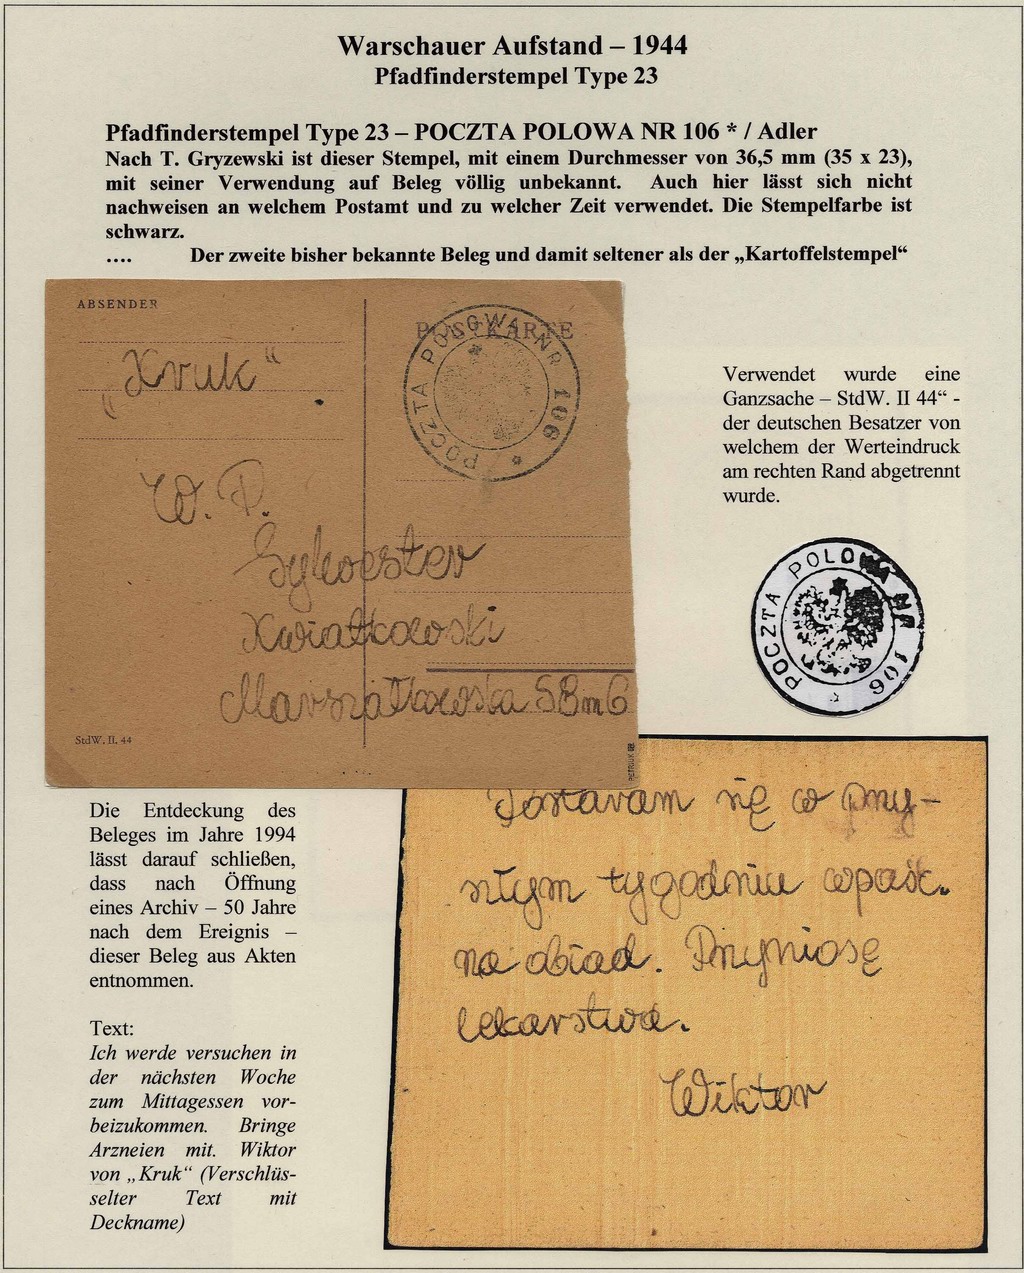 Warschauer Aufstand – 1944
Pfadfinderstempel Type 23
Pfadfinderstempel Type 23 – POCZTA POLOWA NR 106 * / Adler
Nach T. Gryzewski ist dieser Stempel, mit einem Durchmesser von 36,5 mm (35 x 23),
mit seiner Verwendung auf Beleg völlig unbekannt. Auch hier lässt sich nicht
nachweisen an welchem Postamt und zu welcher Zeit verwendet. Die Stempelfarbe ist
schwarz.
.... Der zweite bisher bekannte Beleg und damit seltener als der „Kartoffelstempel“
ABSENDER
POSTKARTE
POCZTA POLOWA NR 106 *
„Kruk“
W. P.
Sylwester
Kwiatkowski
Marszałkowska 58 m 6
StdW. II. 44
PETRIUK
Verwendet wurde eine
Ganzsache – StdW. II 44“ -
der deutschen Besatzer von
welchem der Werteindruck
am rechten Rand abgetrennt
wurde.
POCZTA POLOWA NR 106 *
Die Entdeckung des
Beleges im Jahre 1994
lässt darauf schließen,
dass nach Öffnung
eines Archiv – 50 Jahre
nach dem Ereignis –
dieser Beleg aus Akten
entnommen.
Text:
Ich werde versuchen in
der nächsten Woche
zum Mittagessen vor-
beizukommen. Bringe
Arzneien mit. Wiktor
von „Kruk“ (Verschlüs-
selter Text mit
Deckname)
się w przy-
szłym tygodniu wpaść
na obiad. Przyniosę
lekarstwa.
Wiktor